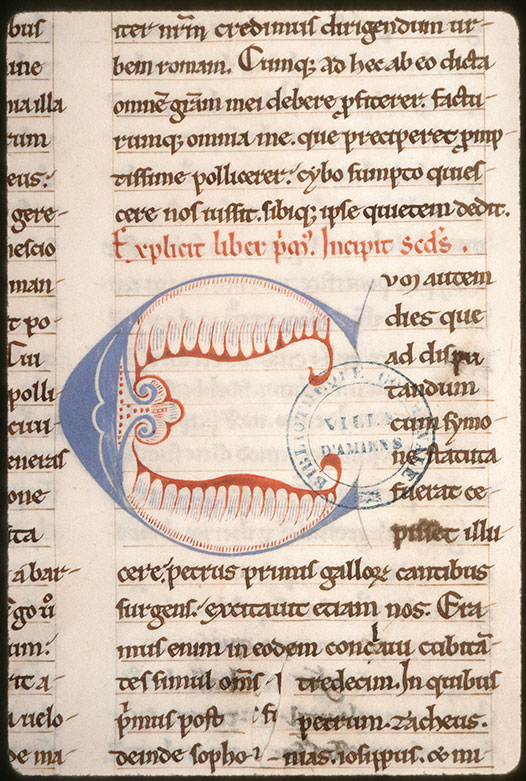 bus
une
na illa
rum
eus.
gere-
nescio
man-
t po-
Cui
polli-
cuiu-
eneras
one
ita
a bar-
go ůı
um.
rit a-
a uelo-
de ma-
iter nrm̄ credimus dirigendum ur-
bem romam. Cumq; ad hec ab eo dicta
omnē grām mei debere ꝓfiterer. factu-
rumq; omnia me. que preciperet ꝓmp-
tissime pollicerer. cybo sumpto quies-
cere nos iussit. sibiq; ipse quietem dedit.
Explicit liber p̄m'. Incipit scd's.
C
um autem
dies que
ad dispu
tandum
cum symo
ne statuta
fuerat ce-
pisset illu
cere. petrus primus galloꝝ cantibus
surgens. excitauit etiam nos. Era-
mus enim in eodem conclaui cubitā-
tes simul om̄s tredecim. In quibus
p̄mus post petrum. zacheus.
deinde sopho- nias. ioseppus. & mi
BIBLIOTHEQUE COMMUNALE
VILLE
D'AMIENS